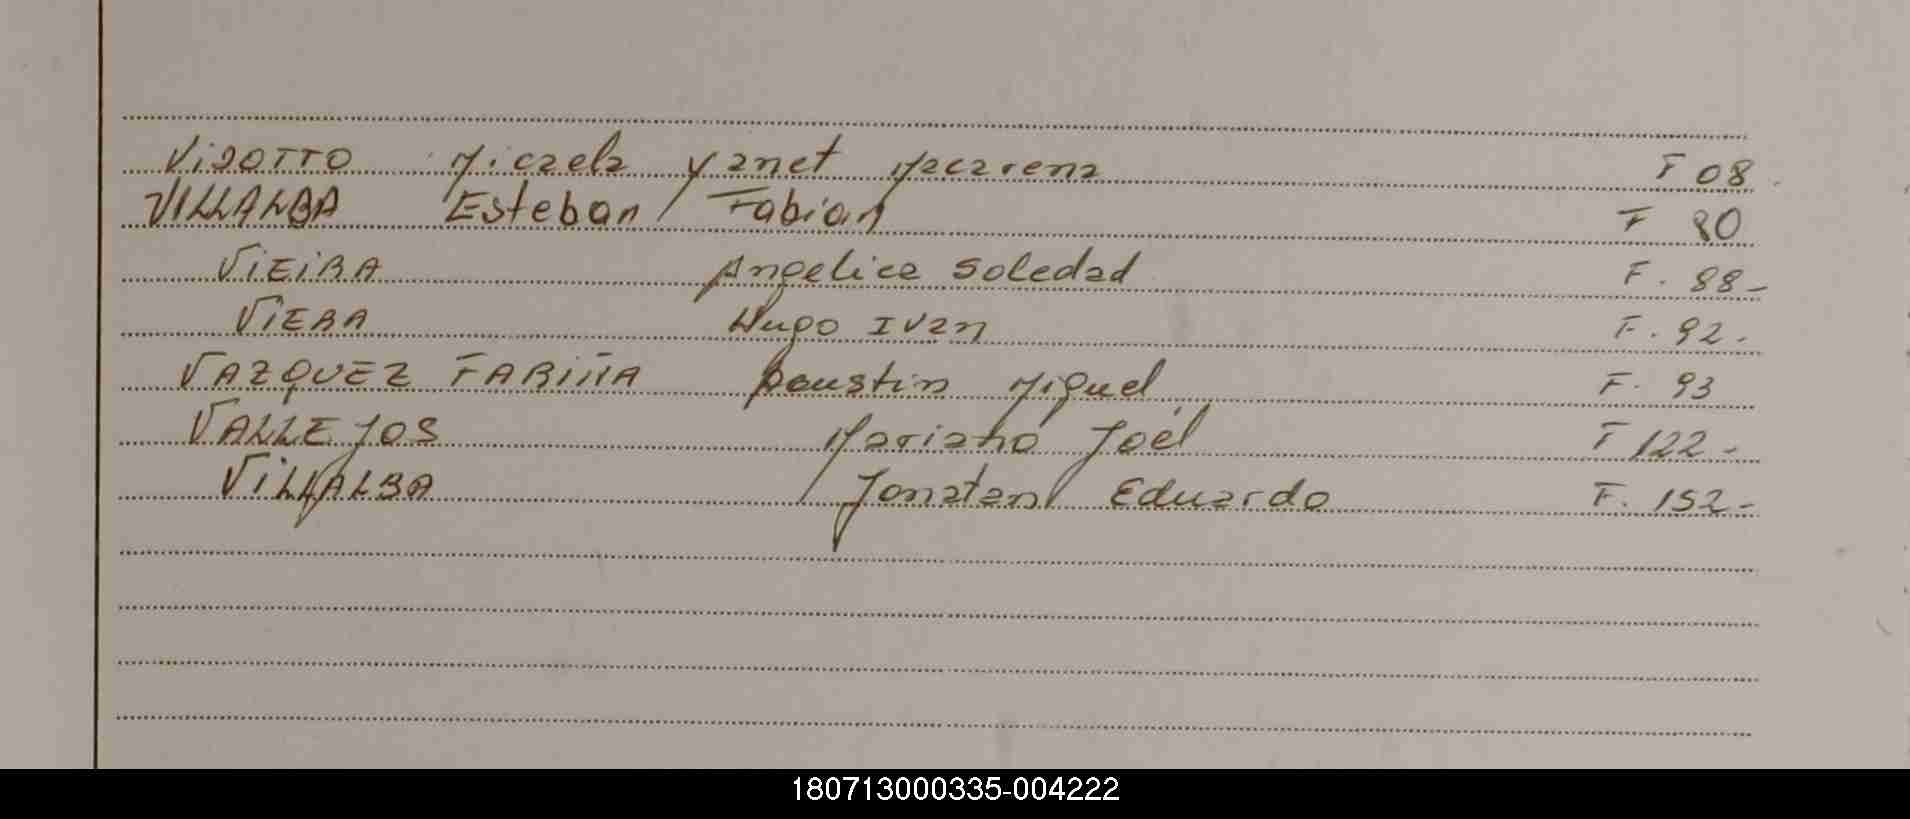 VISOTTO Micaela Yanet Macarena F 08
VILLALBA Esteban Fabian F 80
VIEIRA Angelica Soledad F. 88-
VIERA Hugo Ivan F. 92-
VAZQUEZ FARIÑA Faustin Miguel F. 93
VALLEJOS Mariano Joél F 122-
VILLALBA Jonatan Eduardo F. 152-
180713000335-004222